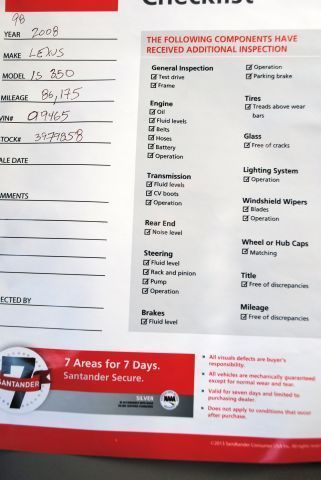 Checklist
98
YEAR 2008
MAKE LEXUS
MODEL IS 350
MILEAGE 86,175
VIN# 09465
STOCK# 3979858
ALE DATE
MMENTS
ECTED BY
THE FOLLOWING COMPONENTS HAVE
RECEIVED ADDITIONAL INSPECTION
General Inspection
Test drive
Frame
Engine
Oil
Fluid levels
Belts
Hoses
Battery
Operation
Transmission
Fluid levels
CV boots
Operation
Rear End
Noise level
Steering
Fluid level
Rack and pinion
Pump
Operation
Brakes
Fluid level
Operation
Parking brake
Tires
Treads above wear
bars
Glass
Free of cracks
Lighting System
Operation
Windshield Wipers
Blades
Operation
Wheel or Hub Caps
Matching
Title
Free of discrepancies
Mileage
Free of discrepancies
7
SANTANDER
7 Areas for 7 Days.
Santander Secure.
SILVER
NAAA
All visual defects are buyer's
responsibility.
All vehicles are mechanically guaranteed
except for normal wear and tear.
Valid for seven days and limited to
purchasing dealer.
Does not apply to conditions that occur
after purchase.
©2013 Santander Consumer USA Inc. All rights reserved.